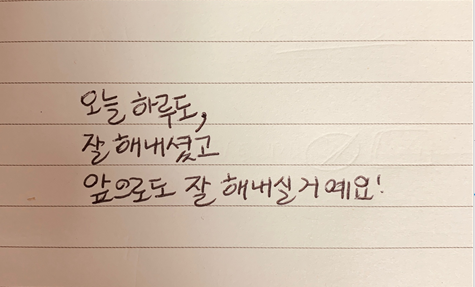 오늘 하루도,
잘 해내셨고
앞으로도 잘 해내실 거예요!